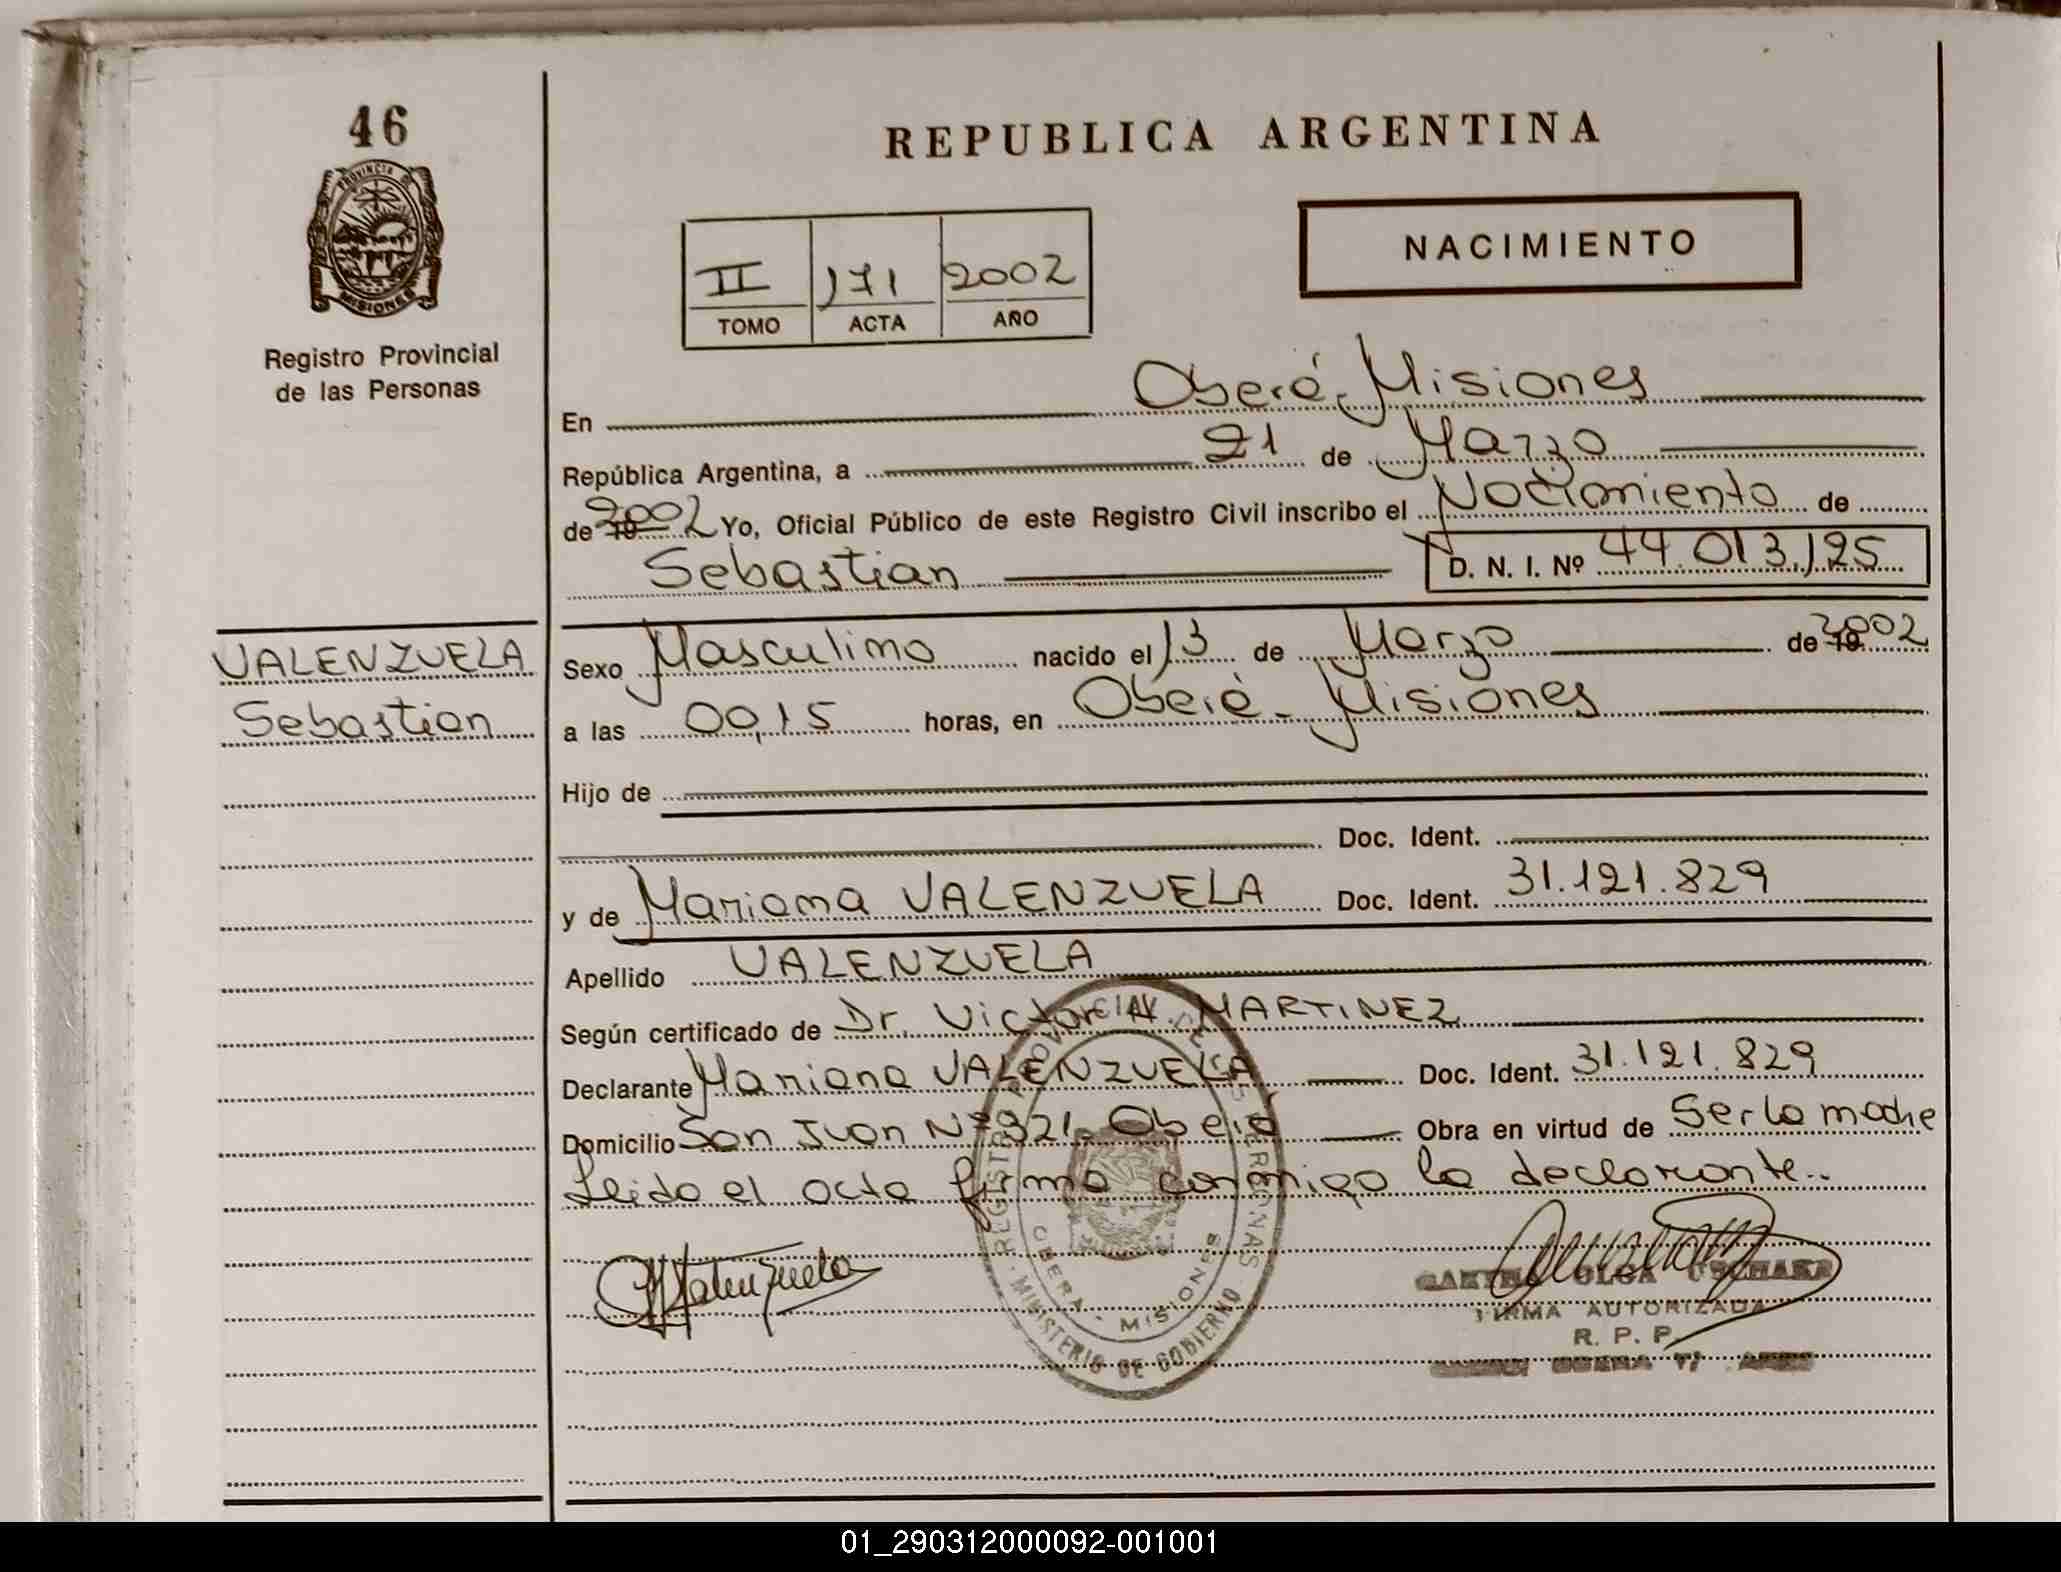 46
PROVINCIA DE
MISIONES
Registro Provincial
de las Personas
REPUBLICA ARGENTINA
NACIMIENTO
II 171 2002
TOMO ACTA AÑO
En Oberá, Misiones
República Argentina, a 21 de Marzo
de 19 2002 Yo, Oficial Público de este Registro Civil inscribo el Nacimiento de
Sebastian D. N. I. Nº 44.013.125
VALENZUELA
Sebastian
Sexo Masculino nacido el 13 de Marzo de 19 2002
a las 00,15 horas, en Oberá - Misiones
Hijo de
Doc. Ident.
y de Mariana VALENZUELA Doc. Ident. 31.121.829
Apellido VALENZUELA
Según certificado de Dr. Victor H. MARTINEZ
Declarante Mariana VALENZUELA Doc. Ident. 31.121.829
Domicilio San Juan Nº 321. Oberá Obra en virtud de Ser la madre
Leida el acta firma conmigo la declarante..
REGISTRO PROVINCIAL DE LAS PERSONAS
OBERA - MISIONES
MINISTERIO DE GOBIERNO
MValenzuela
OLGA
FIRMA AUTORIZADA
R. P. P.
01_290312000092-001001